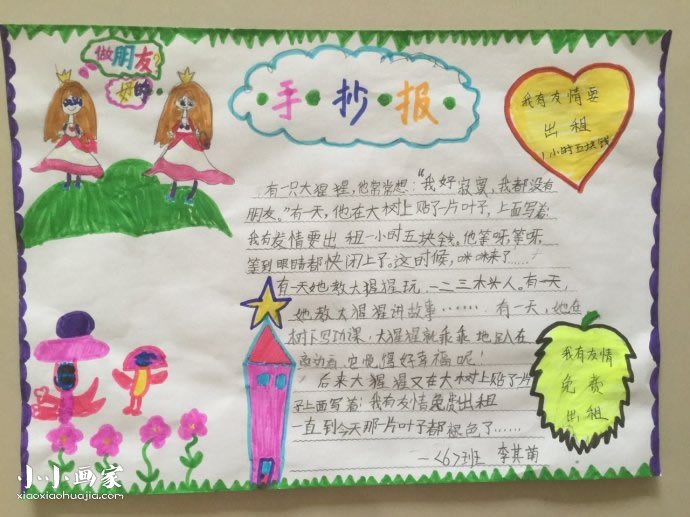 做朋友?
好哟
手抄报
我有友情要
出租
1小时五块钱
有一只大猩猩,他常常想:“我好寂寞,我都没有
朋友。”有一天,他在大树上贴了一片叶子,上面写着
我有友情要出租一小时五块钱。他等呀等呀
等到眼睛都快闭上了。这时候,咪咪来了……
有一天她教大猩猩玩一二三木头人。有一天,
她教大猩猩讲故事……有一天,她在
树下写功课,大猩猩就乖乖地趴在
旁边看,它觉得好幸福呢!
后来大猩猩又在大树上贴了一片
子上面写着:我有友情免费出租
一直到今天那一片叶子都褪色了……
一<6>班 李其苗
我有友情
免费
出租
小小画家
xiaoxiaohuajia.com